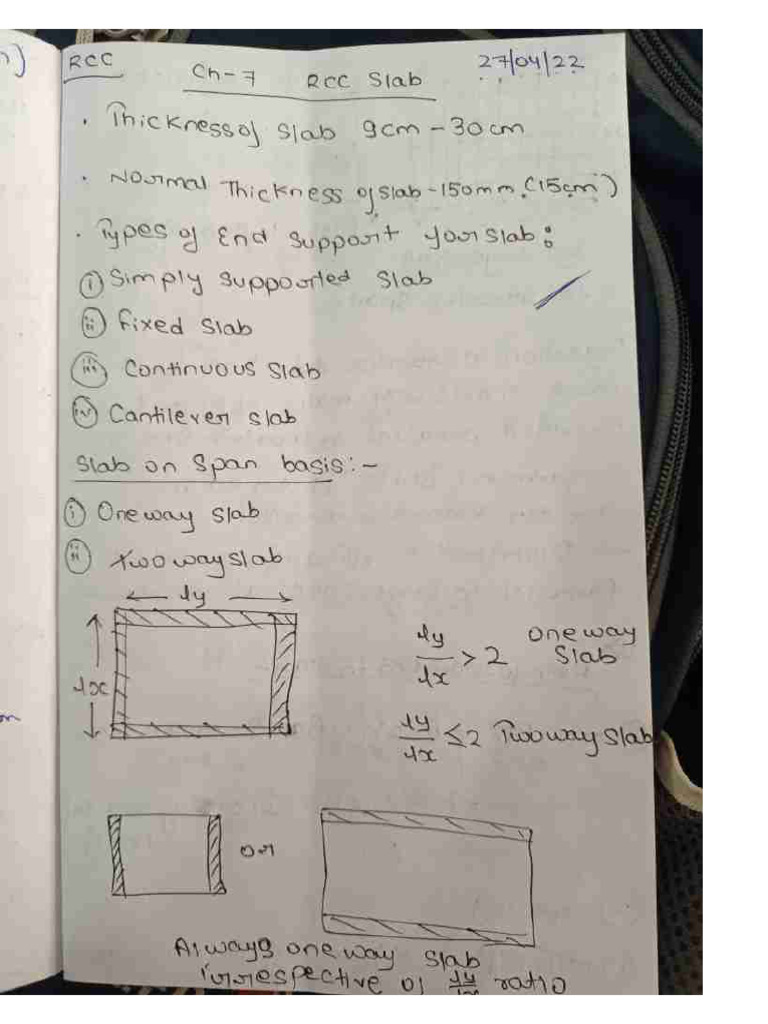 RCC
27/04/22
Ch-7 RCC Slab
. Thickness of slab 9cm - 30cm
. Normal Thickness of slab - 150mm. (15cm)
. Types of End support your slab:
(i) Simply supported slab
(ii) fixed slab
(iii) Continuous slab
(iv) Cantilever slab
Slab on span basis:-
(i) One way slab
(ii) two way slab
ly
lx
ly/lx > 2 one way slab
ly/lx ≤ 2 Two way slab
or
Always one way slab
irrespective of ly/lx ratio